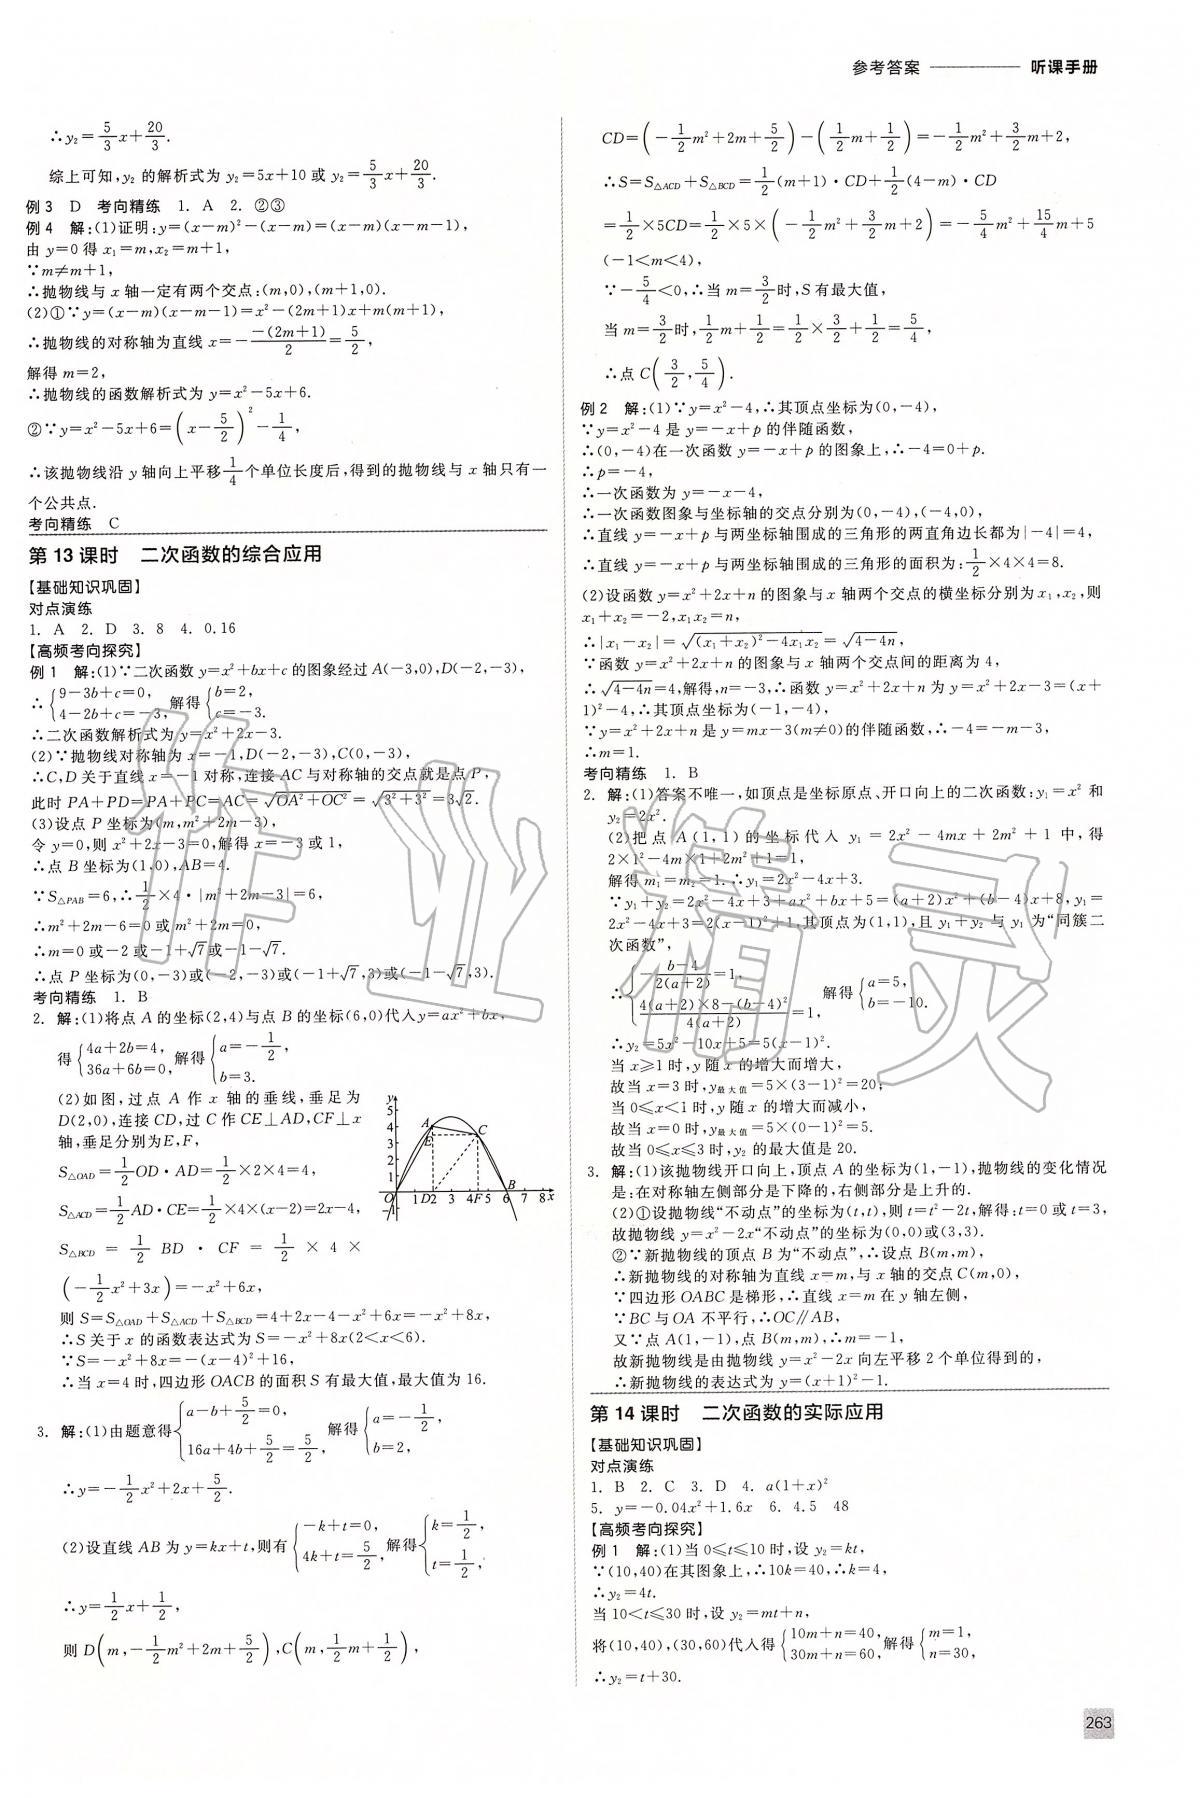 参考答案 听课手册
∴y₂=5/3x+20/3.
综上可知,y₂ 的解析式为 y₂=5x+10 或 y₂=5/3x+20/3.
例 3 D 考向精练 1. A 2. ②③
例 4 解:(1)证明:y=(x-m)²-(x-m)=(x-m)(x-m-1),
由 y=0 得 x₁=m,x₂=m+1,
∵m≠m+1,
∴抛物线与 x 轴一定有两个交点:(m,0),(m+1,0).
(2)①∵y=(x-m)(x-m-1)=x²-(2m+1)x+m(m+1),
∴抛物线的对称轴为直线 x=-(-(2m+1))/2=5/2,
解得 m=2,
∴抛物线的函数解析式为 y=x²-5x+6.
②∵y=x²-5x+6=(x-5/2)²-1/4,
∴该抛物线沿 y 轴向上平移1/4个单位长度后,得到的抛物线与 x 轴只有一
个公共点.
考向精练 C
第 13 课时 二次函数的综合应用
【基础知识巩固】
对点演练
1. A 2. D 3. 8 4. 0.16
【高频考向探究】
例 1 解:(1)∵二次函数 y=x²+bx+c 的图象经过 A(-3,0),D(-2,-3),
∴{9-3b+c=0, 4-2b+c=-3, 解得{b=2, c=-3.
∴二次函数解析式为 y=x²+2x-3.
(2)∵抛物线对称轴为 x=-1,D(-2,-3),C(0,-3),
∴C,D 关于直线 x=-1 对称,连接 AC 与对称轴的交点就是点 P,
此时 PA+PD=PA+PC=AC=√(OA²+OC²)=√(3²+3²)=3√2.
(3)设点 P 坐标为(m,m²+2m-3),
令 y=0,则 x²+2x-3=0,解得 x=-3 或 1,
∴点 B 坐标为(1,0),AB=4.
∵S△PAB=6,∴1/2×4·|m²+2m-3|=6,
∴m²+2m-6=0 或 m²+2m=0,
∴m=0 或-2 或-1+√7或-1-√7.
∴点 P 坐标为(0,-3)或(-2,-3)或(-1+√7,3)或(-1-√7,3).
考向精练 1. B
2. 解:(1)将点 A 的坐标(2,4)与点 B 的坐标(6,0)代入y=ax²+bx,
得{4a+2b=4, 36a+6b=0, 解得{a=-1/2, b=3.
(2)如图,过点 A 作 x 轴的垂线,垂足为
D(2,0),连接 CD,过 C 作 CE⊥AD,CF⊥x
轴,垂足分别为E,F,
S△OAD=1/2OD·AD=1/2×2×4=4,
S△ACD=1/2AD·CE=1/2×4×(x-2)=2x-4,
S△BCD=1/2BD·CF=1/2×4×
(-1/2x²+3x)=-x²+6x,
则 S=S△OAD+S△ACD+S△BCD=4+2x-4-x²+6x=-x²+8x,
∴S 关于 x 的函数表达式为 S=-x²+8x(2<x<6).
∵S=-x²+8x=-(x-4)²+16,
∴当 x=4 时,四边形 OACB 的面积 S 有最大值,最大值为 16.
3. 解:(1)由题意得{a-b+5/2=0, 16a+4b+5/2=5/2, 解得{a=-1/2, b=2,
∴y=-1/2x²+2x+5/2.
(2)设直线 AB 为 y=kx+t,则有{-k+t=0, 4k+t=5/2, 解得{k=1/2, t=1/2,
∴y=1/2x+1/2,
则 D(m,-1/2m²+2m+5/2),C(m,1/2m+1/2),
y
5
4 A
3 E C
2
1
O 1 D2 3 4F 5 6 7 8 x
B
CD=(-1/2m²+2m+5/2)-(1/2m+1/2)=-1/2m²+3/2m+2,
∴S=S△ACD+S△BCD=1/2(m+1)·CD+1/2(4-m)·CD
=1/2×5CD=1/2×5×(-1/2m²+3/2m+2)=-5/4m²+15/4m+5
(-1<m<4),
∵-5/4<0,∴当 m=3/2时,S 有最大值,
当 m=3/2时,1/2m+1/2=1/2×3/2+1/2=5/4,
∴点 C(3/2,5/4).
例 2 解:(1)∵y=x²-4,∴其顶点坐标为(0,-4),
∵y=x²-4 是 y=-x+p 的伴随函数,
∴(0,-4)在一次函数 y=-x+p 的图象上,∴-4=0+p.
∴p=-4,
∴一次函数为 y=-x-4,
∴一次函数图象与坐标轴的交点分别为(0,-4),(-4,0),
∴直线 y=-x+p 与两坐标轴围成的三角形的两直角边长都为|-4|=4,
∴直线 y=-x+p 与两坐标轴围成的三角形的面积为:1/2×4×4=8.
(2)设函数 y=x²+2x+n 的图象与 x 轴两个交点的横坐标分别为x₁,x₂,则
x₁+x₂=-2,x₁x₂=n,
∴|x₁-x₂|=√((x₁+x₂)²-4x₁x₂)=√(4-4n),
∵函数 y=x²+2x+n 的图象与 x 轴两个交点间的距离为 4,
∴√(4-4n)=4,解得,n=-3,∴函数 y=x²+2x+n 为 y=x²+2x-3=(x+
1)²-4,∴其顶点坐标为(-1,-4),
∵y=x²+2x+n 是 y=mx-3(m≠0)的伴随函数,∴-4=-m-3,
∴m=1.
考向精练 1. B
2. 解:(1)答案不唯一,如顶点是坐标原点、开口向上的二次函数:y₁=x² 和
y₂=2x².
(2)把点 A(1,1)的坐标代入 y₁=2x²-4mx+2m²+1 中,得
2×1²-4m×1+2m²+1=1,
解得 m₁=m₂=1.∴y₁=2x²-4x+3.
∵y₁+y₂=2x²-4x+3+ax²+bx+5=(a+2)x²+(b-4)x+8,y₁=
2x²-4x+3=2(x-1)²+1,其顶点为(1,1),且 y₁+y₂ 与 y₁ 为“同簇二
次函数”,
∴{-(b-4)/(2(a+2))=1, (4(a+2)×8-(b-4)²)/(4(a+2))=1, 解得{a=5, b=-10.
∴y₂=5x²-10x+5=5(x-1)².
当 x≥1 时,y 随 x 的增大而增大,
故当 x=3 时,y最大值=5×(3-1)²=20,
当 0≤x<1 时,y 随 x 的增大而减小,
故当 x=0 时,y最大值=5×(0-1)²=5.
故当 0≤x≤3 时,y₂ 的最大值是 20.
3. 解:(1)该抛物线开口向上,顶点 A 的坐标为(1,-1),抛物线的变化情况
是:在对称轴左侧部分是下降的,右侧部分是上升的.
(2)①设抛物线“不动点”的坐标为(t,t),则 t=t²-2t,解得:t=0 或 t=3,
故抛物线 y=x²-2x“不动点”的坐标为(0,0)或(3,3).
②∵新抛物线的顶点 B 为“不动点”,∴设点 B(m,m),
∴新抛物线的对称轴为直线 x=m,与 x 轴的交点 C(m,0),
∵四边形 OABC 是梯形,∴直线 x=m 在 y 轴左侧,
∵BC 与 OA 不平行,∴OC∥AB,
又∵点 A(1,-1),点 B(m,m),∴m=-1,
故新抛物线是由抛物线 y=x²-2x 向左平移 2 个单位得到的,
∴新抛物线的表达式为 y=(x+1)²-1.
第 14 课时 二次函数的实际应用
【基础知识巩固】
对点演练
1. B 2. C 3. D 4. a(1+x)²
5. y=-0.04x²+1.6x 6. 4.5 48
【高频考向探究】
例 1 解:(1)当 0≤t≤10 时,设 y₂=kt,
∵(10,40)在其图象上,∴10k=40,∴k=4,
∴y₂=4t.
当 10<t≤30 时,设 y₂=mt+n,
将(10,40),(30,60)代入得{10m+n=40, 30m+n=60, 解得{m=1, n=30,
∴y₂=t+30.
263
作业精灵